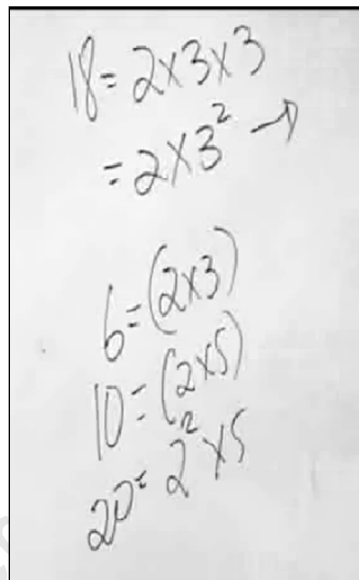 18=2×3×3
=2×3² →
6=(2×3)
10=(2×5)
20=2²×5